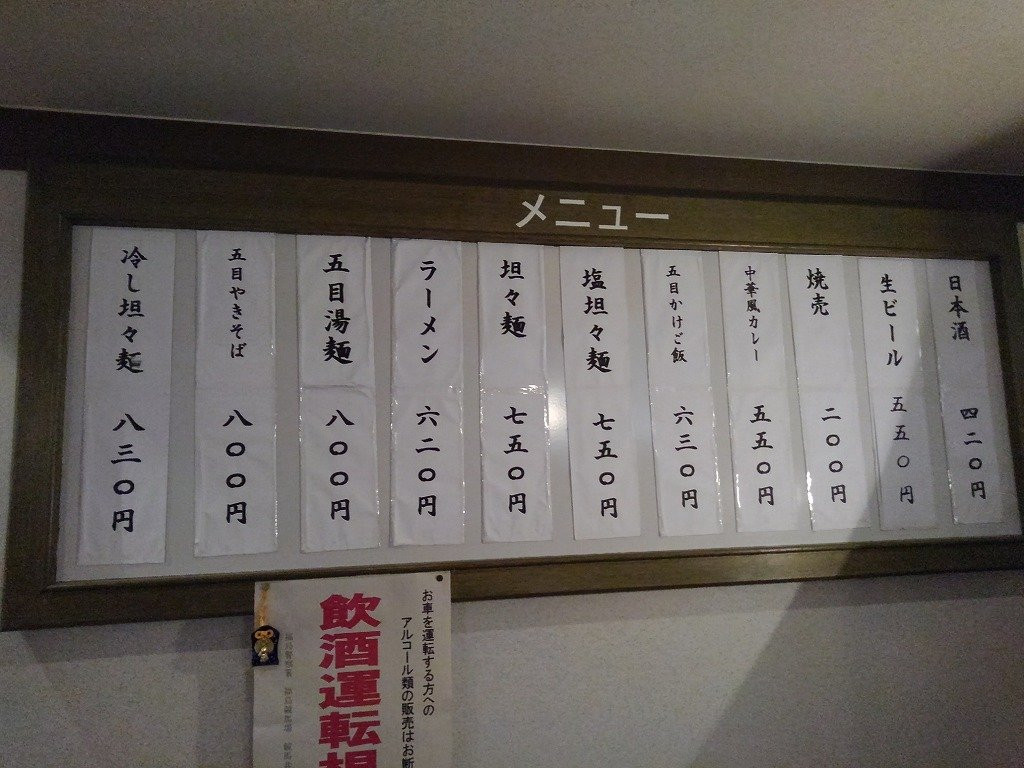 メニュー
日本酒 四二〇円
生ビール 五五〇円
焼売 二〇〇円
中華風カレー 五五〇円
五目かけご飯 六三〇円
塩坦々麺 七五〇円
坦々麺 七五〇円
ラーメン 六二〇円
五目湯麺 八〇〇円
五目やきそば 八〇〇円
冷し坦々麺 八三〇円
お車を運転する方への
アルコール類の販売はお断
飲酒運転